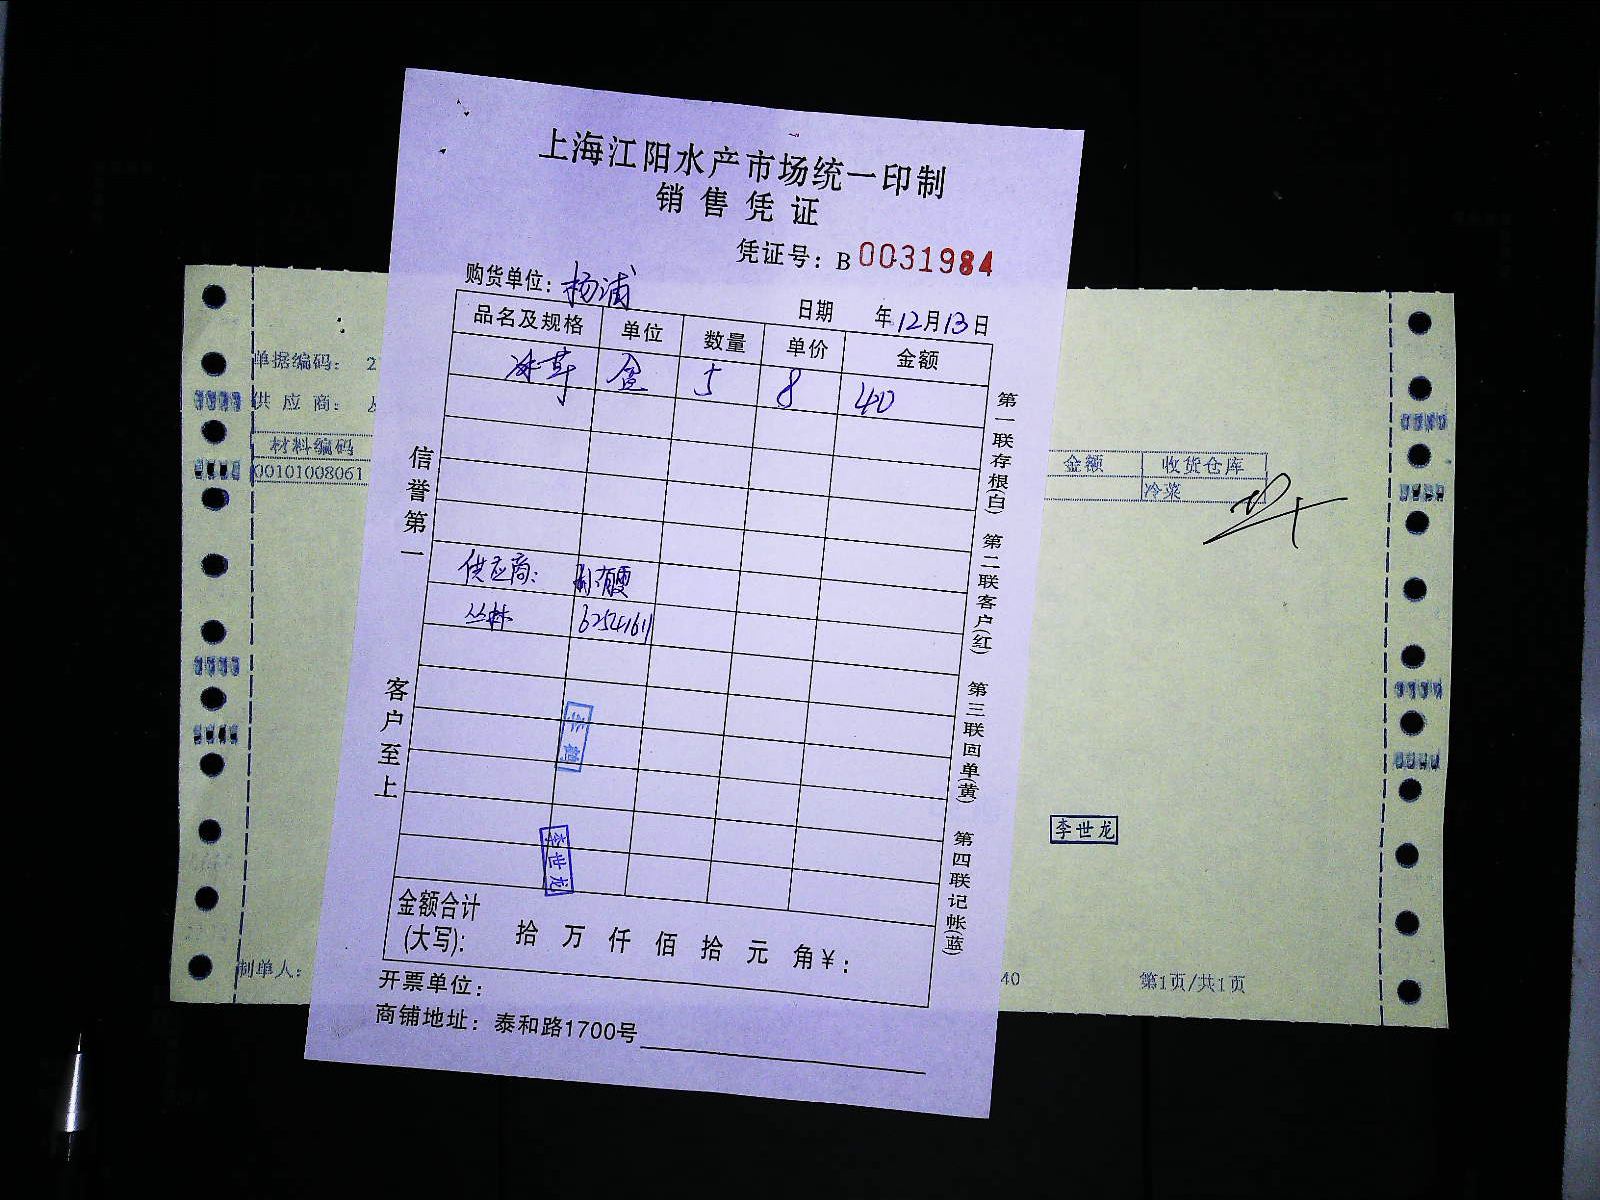 上海江阳水产市场统一印制
销售凭证
凭证号：B 0031984
购货单位：杨浦
日期 年12月13日
品名及规格 单位 数量 单价 金额
冰草 盒 5 8 40
供应商：
丛林 62541611
李鹤
李世龙
金额合计
(大写)： 拾 万 仟 佰 拾 元 角¥：
开票单位：
商铺地址：泰和路1700号
信誉第一
客户至上
第一联存根(白) 第二联客户(红) 第三联回单(黄) 第四联记帐(蓝)
单据编码： 2
供应商：
材料编码
00101008061
制单人：
金额 收货仓库
冷菜
李世龙
40
第1页/共1页